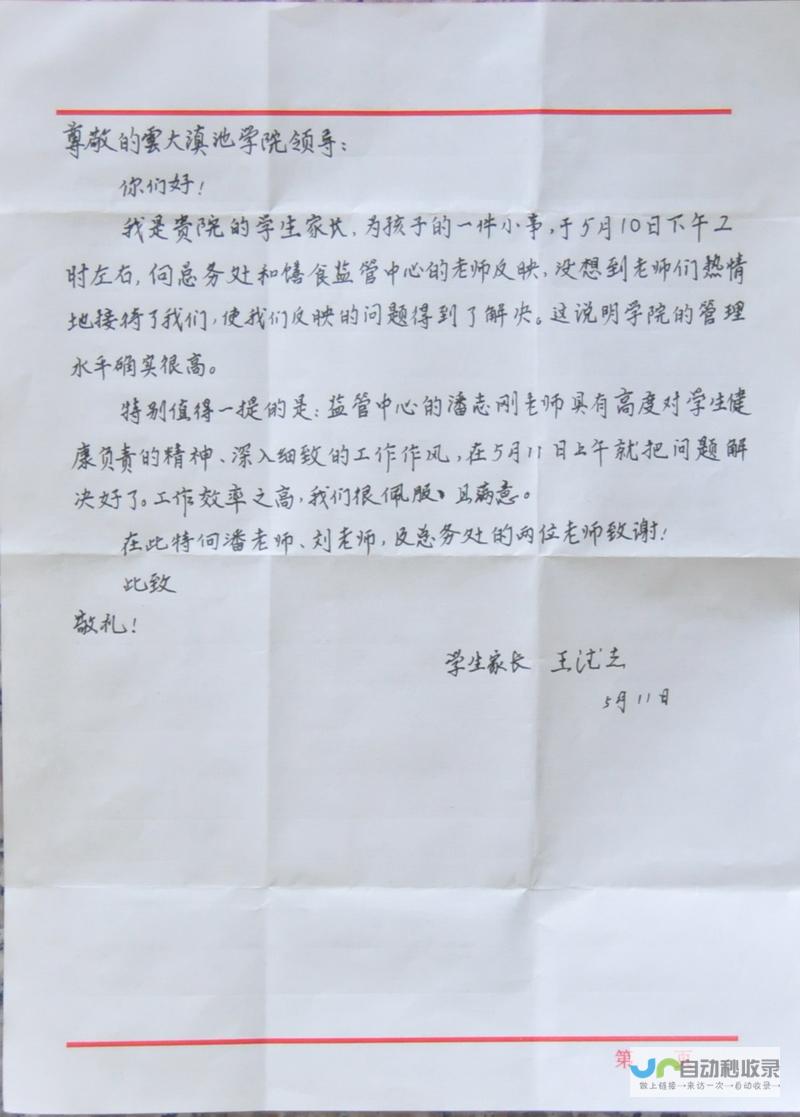 尊敬的雲大滇池学院领导：
你们好！
我是贵院的学生家长，为孩子的一件小事，于5月10日下午2
时左右，向总务处和膳食监管中心的老师反映，没想到老师们热情
地接待了我们，使我们反映的问题得到了解决。这说明学院的管理
水平确实很高。
特别值得一提的是：监管中心的潘志刚老师具有高度对学生健
康负责的精神、深入细致的工作作风，在5月11日上午就把问题解
决好了。工作效率之高，我们很佩服、且满意。
在此特向潘老师、刘老师，及总务处的两位老师致谢！
此致
敬礼！
学生家长 王
5月11日
第 页
自动秒收录
做上链接→来访一次→自动收录